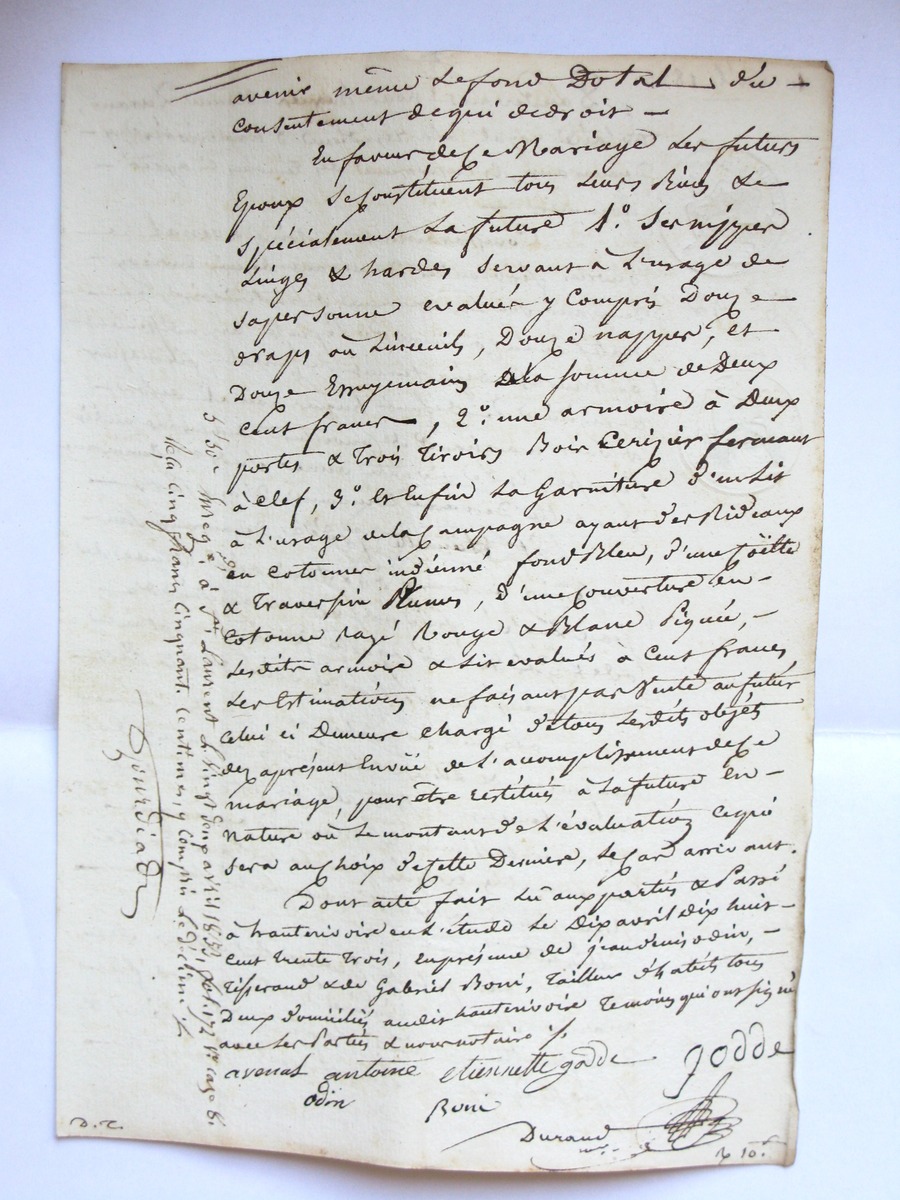 avenir même le fond Dotal du
consentement de qui de droit
En faveur de ce Mariage les futurs
Epoux se constituent tous leurs Biens &
spécialement la future 1°. ses nippes
Linges & hardes servant à l'usage de
sa personne evalués y Compris Douze
draps où Linceuils, Douze nappes, et
Douze Essuyemains à la somme de Deux
Cent francs, 2°. une armoire à Deux
portes & Trois Tiroirs Bois Cerizier fermant
à clef, 3°. et Enfin la Garniture d'un Lit
à l'usage de la Campagne ayant des Rideaux
en Cotonne indienne fond Bleu, d'une Coëtte
& Traversin Plumes, d'une Couverture en
Cotonne rayé Rouge & Blanc Piquée,
Lesdits armoire & Lit evalués à Cent francs
Les Estimations ne faisant pas Vente au futur
Celui ci Demeure chargé de tous lesdits objets
dez aprésent Envüe de l'acomplissement de ce
mariage, pour être restitués à la future En
nature où le montant de l'évaluation ce qui
sera au choix de cette Derniere, le Cas arrivant.
Dont acte fait Lû aux parties & Passé
à hauterivoire en L'étude le Dix avril dix huit
Cent trente Trois, en présence de jean denis odin,
Tisserand & de Gabriel Boni, Tailleur d'habits tous
Deux domiciliés audit hauterivoire Temoins qui ont signé
avec les Parties & nous notaire
avenat antoine etiennette jodde Jodde
odin Boni
Durand
Enregé. à St. Laurent le vingt deux avril 1833, fol. 172 Vo. case 6.
Reçu Cinq francs Cinquante Centimes, y Compris le décime
D.C.
R 10